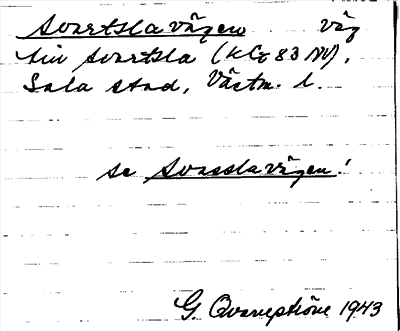 Svartslavägen väg
till Svartsla (KCr 83 NV),
Sala stad, Västm. l.
se Svasslavägen!
G. Qvarnström 1943